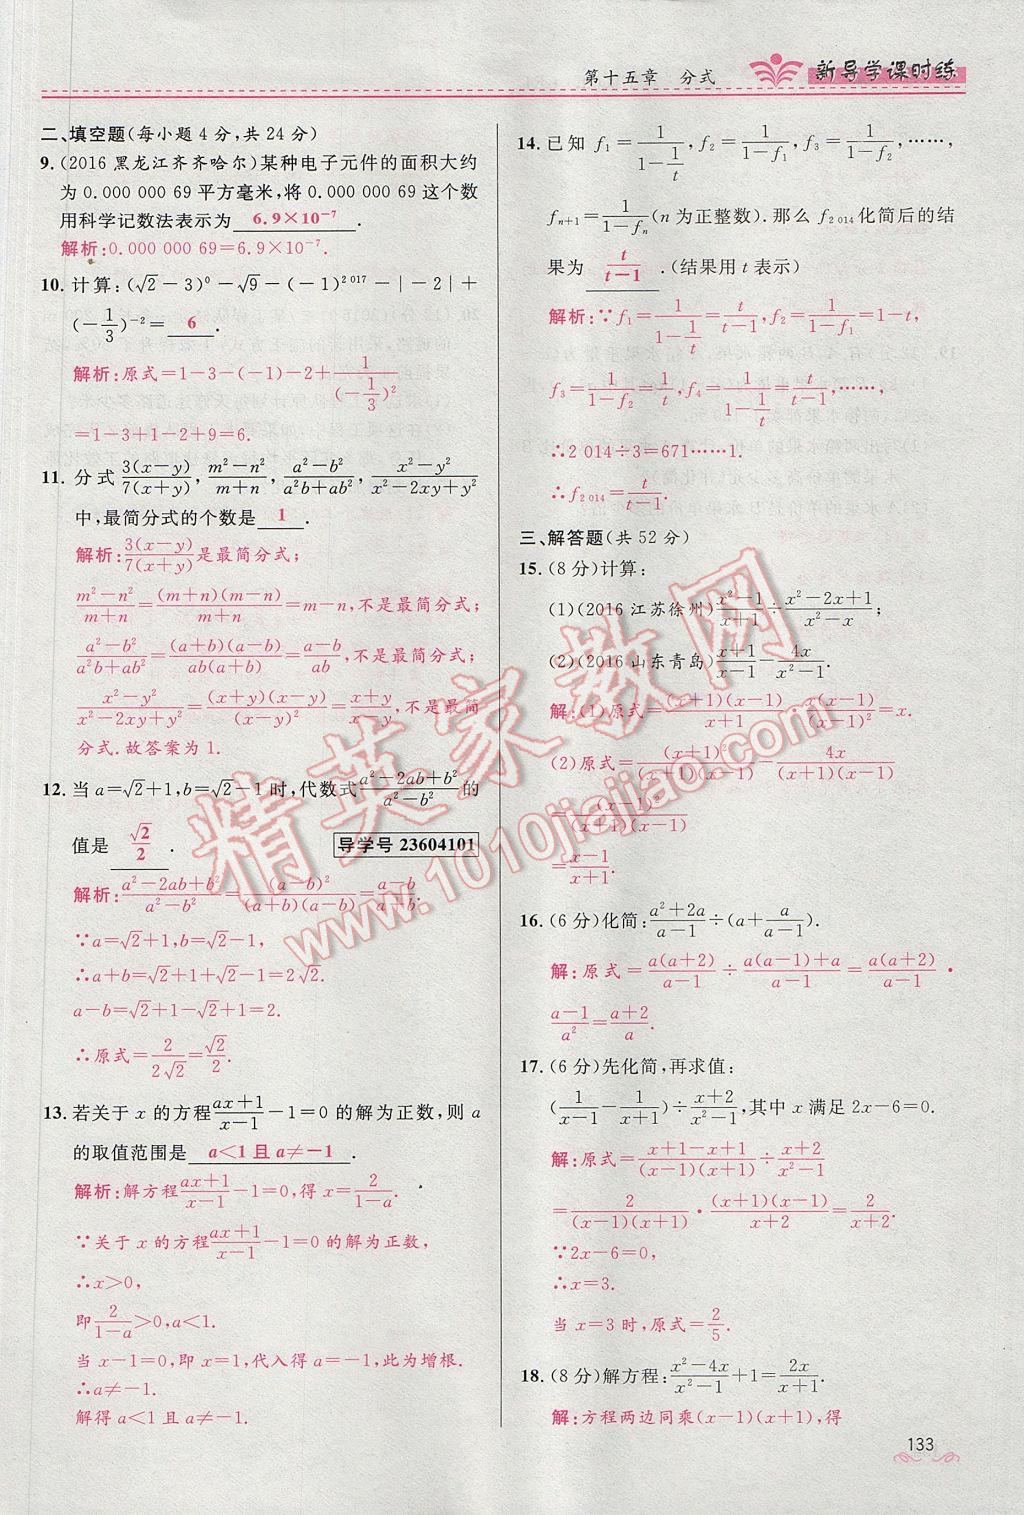 第十五章 分式 新导学课时练
二、填空题(每小题4分,共24分)
9.(2016黑龙江齐齐哈尔)某种电子元件的面积大约
为0.000 000 69平方毫米,将0.000 000 69这个数
用科学记数法表示为 6.9×10⁻⁷ .
解析:0.000 000 69=6.9×10⁻⁷.
10.计算:(√2-3)⁰-√9-(-1)²⁰¹⁷-|-2|+
(-1/3)⁻²= 6 .
解析:原式=1-3-(-1)-2+1/(-1/3)²
=1-3+1-2+9=6.
11.分式3(x-y)/7(x+y),(m²-n²)/(m+n),(a²-b²)/(a²b+ab²),(x²-y²)/(x²-2xy+y²)
中,最简分式的个数是 1 .
解析:3(x-y)/7(x+y)是最简分式;
(m²-n²)/(m+n)=(m+n)(m-n)/(m+n)=m-n,不是最简分式;
(a²-b²)/(a²b+ab²)=(a+b)(a-b)/ab(a+b)=(a-b)/ab,不是最简分式;
(x²-y²)/(x²-2xy+y²)=(x+y)(x-y)/(x-y)²=(x+y)/(x-y),不是最简
分式.故答案为1.
12.当a=√2+1,b=√2-1时,代数式(a²-2ab+b²)/(a²-b²)的
值是 √2/2 . 导学号 23604101
解析:(a²-2ab+b²)/(a²-b²)=(a-b)²/(a+b)(a-b)=(a-b)/(a+b).
∵a=√2+1,b=√2-1,
∴a+b=√2+1+√2-1=2√2.
a-b=√2+1-√2+1=2.
∴原式=2/2√2=√2/2.
13.若关于x的方程(ax+1)/(x-1)-1=0的解为正数,则a
的取值范围是 a<1且a≠-1 .
解析:解方程(ax+1)/(x-1)-1=0,得x=2/(1-a).
∵关于x的方程(ax+1)/(x-1)-1=0的解为正数,
∴x>0,
即2/(1-a)>0,a<1.
当x-1=0,即x=1,代入得a=-1,此为增根.
∴a≠-1.
解得a<1且a≠-1.
14.已知f₁=1/(1-1/t),f₂=1/(1-f₁),f₃=1/(1-f₂),……,
fₙ₊₁=1/(1-fₙ)(n为正整数).那么f₂₀₁₄化简后的结
果为 t/(t-1) .(结果用t表示)
解析:∵f₁=1/(1-1/t)=t/(t-1),f₂=1/(1-f₁)=1-t,
f₃=1/(1-f₂)=1/t,f₄=1/(1-1/t)=t/(t-1),……,
∴2 014÷3=671……1.
∴f₂₀₁₄=t/(t-1).
三、解答题(共52分)
15.(8分)计算:
(1)(2016江苏徐州)(x²-1)/(x+1)÷(x²-2x+1)/(x²-x);
(2)(2016山东青岛)(x+1)/(x-1)-4x/(x²-1).
解:(1)原式=(x+1)(x-1)/(x+1)·x(x-1)/(x-1)²=x.
(2)原式=(x+1)²/(x+1)(x-1)-4x/(x+1)(x-1)
=(x-1)²/(x+1)(x-1)
=(x-1)/(x+1).
16.(6分)化简:(a²+2a)/(a-1)÷(a+a/(a-1)).
解:原式=a(a+2)/(a-1)÷(a(a-1)+a)/(a-1)=a(a+2)/(a-1)·
(a-1)/a²=(a+2)/a.
17.(6分)先化简,再求值:
(1/(x-1)-1/(x+1))÷(x+2)/(x²-1),其中x满足2x-6=0.
解:原式=(x+1-x+1)/(x-1)(x+1)÷(x+2)/(x²-1)
=2/(x-1)(x+1)·(x+1)(x-1)/(x+2)=2/(x+2).
∵2x-6=0,
∴x=3.
当x=3时,原式=2/5.
18.(8分)解方程:(x²-4x)/(x²-1)+1=2x/(x+1).
解:方程两边同乘(x-1)(x+1),得
133
精英家教网
www.1010jiajiao.com